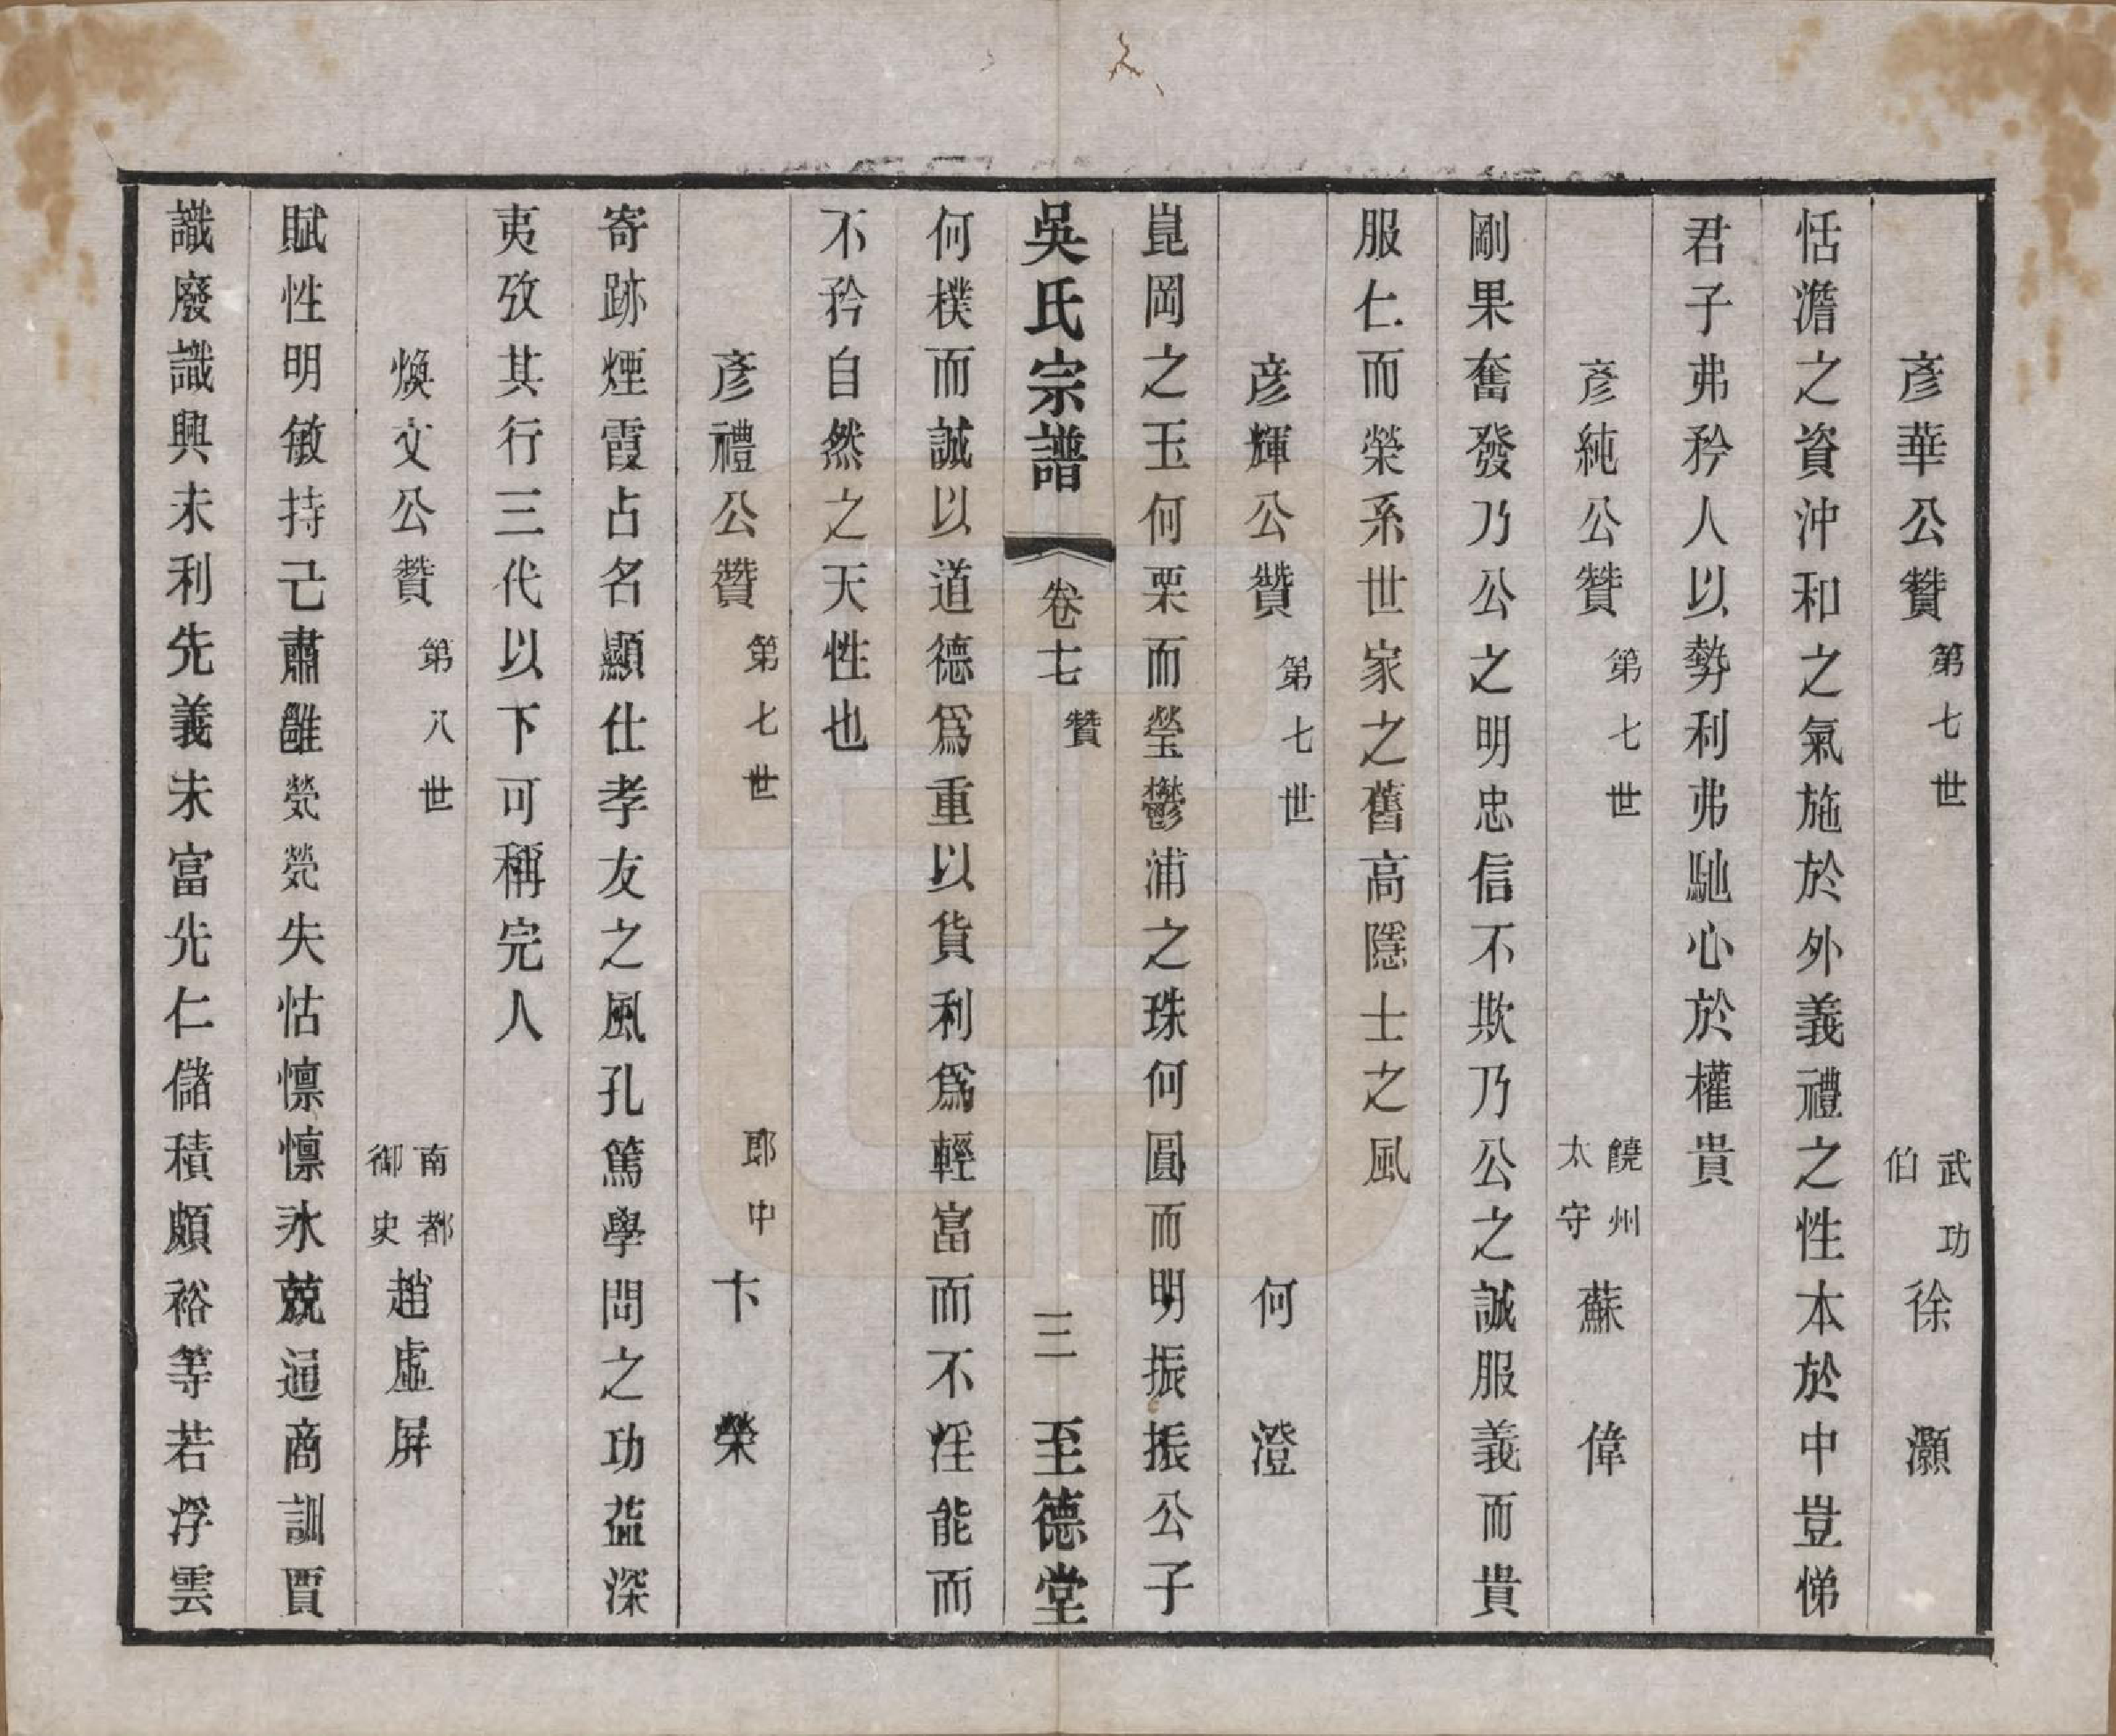 彥華公贊 第七世 武功伯 徐灝
恬澹之資沖和之氣施於外義禮之性本於中豈悌
君子弗矜人以勢利弗馳心於權貴
彥純公贊 第七世 饒州太守 蘇偉
剛果奮發乃公之明忠信不欺乃公之誠服義而貴
服仁而榮系世家之舊高隱士之風
彦輝公贊 第七世 何澄
崑岡之玉何栗而瑩鬱浦之珠何圓而明振振公子
吳氏宗譜 卷七 贊 三 至德堂
何樸而誠以道德爲重以貨利爲輕富而不淫能而
不矜自然之天性也
彥禮公贊 第七世 郎中 卞榮
寄跡煙霞占名顯仕孝友之風孔篤學問之功益深
夷攷其行三代以下可稱完人
煥文公贊 第八世 南都御史 趙虛屏
賦性明敏持己肅雝煢煢失怙懍懍氷兢通商訓賈
識廢識興未利先義未富先仁儲積頗裕等若浮雲